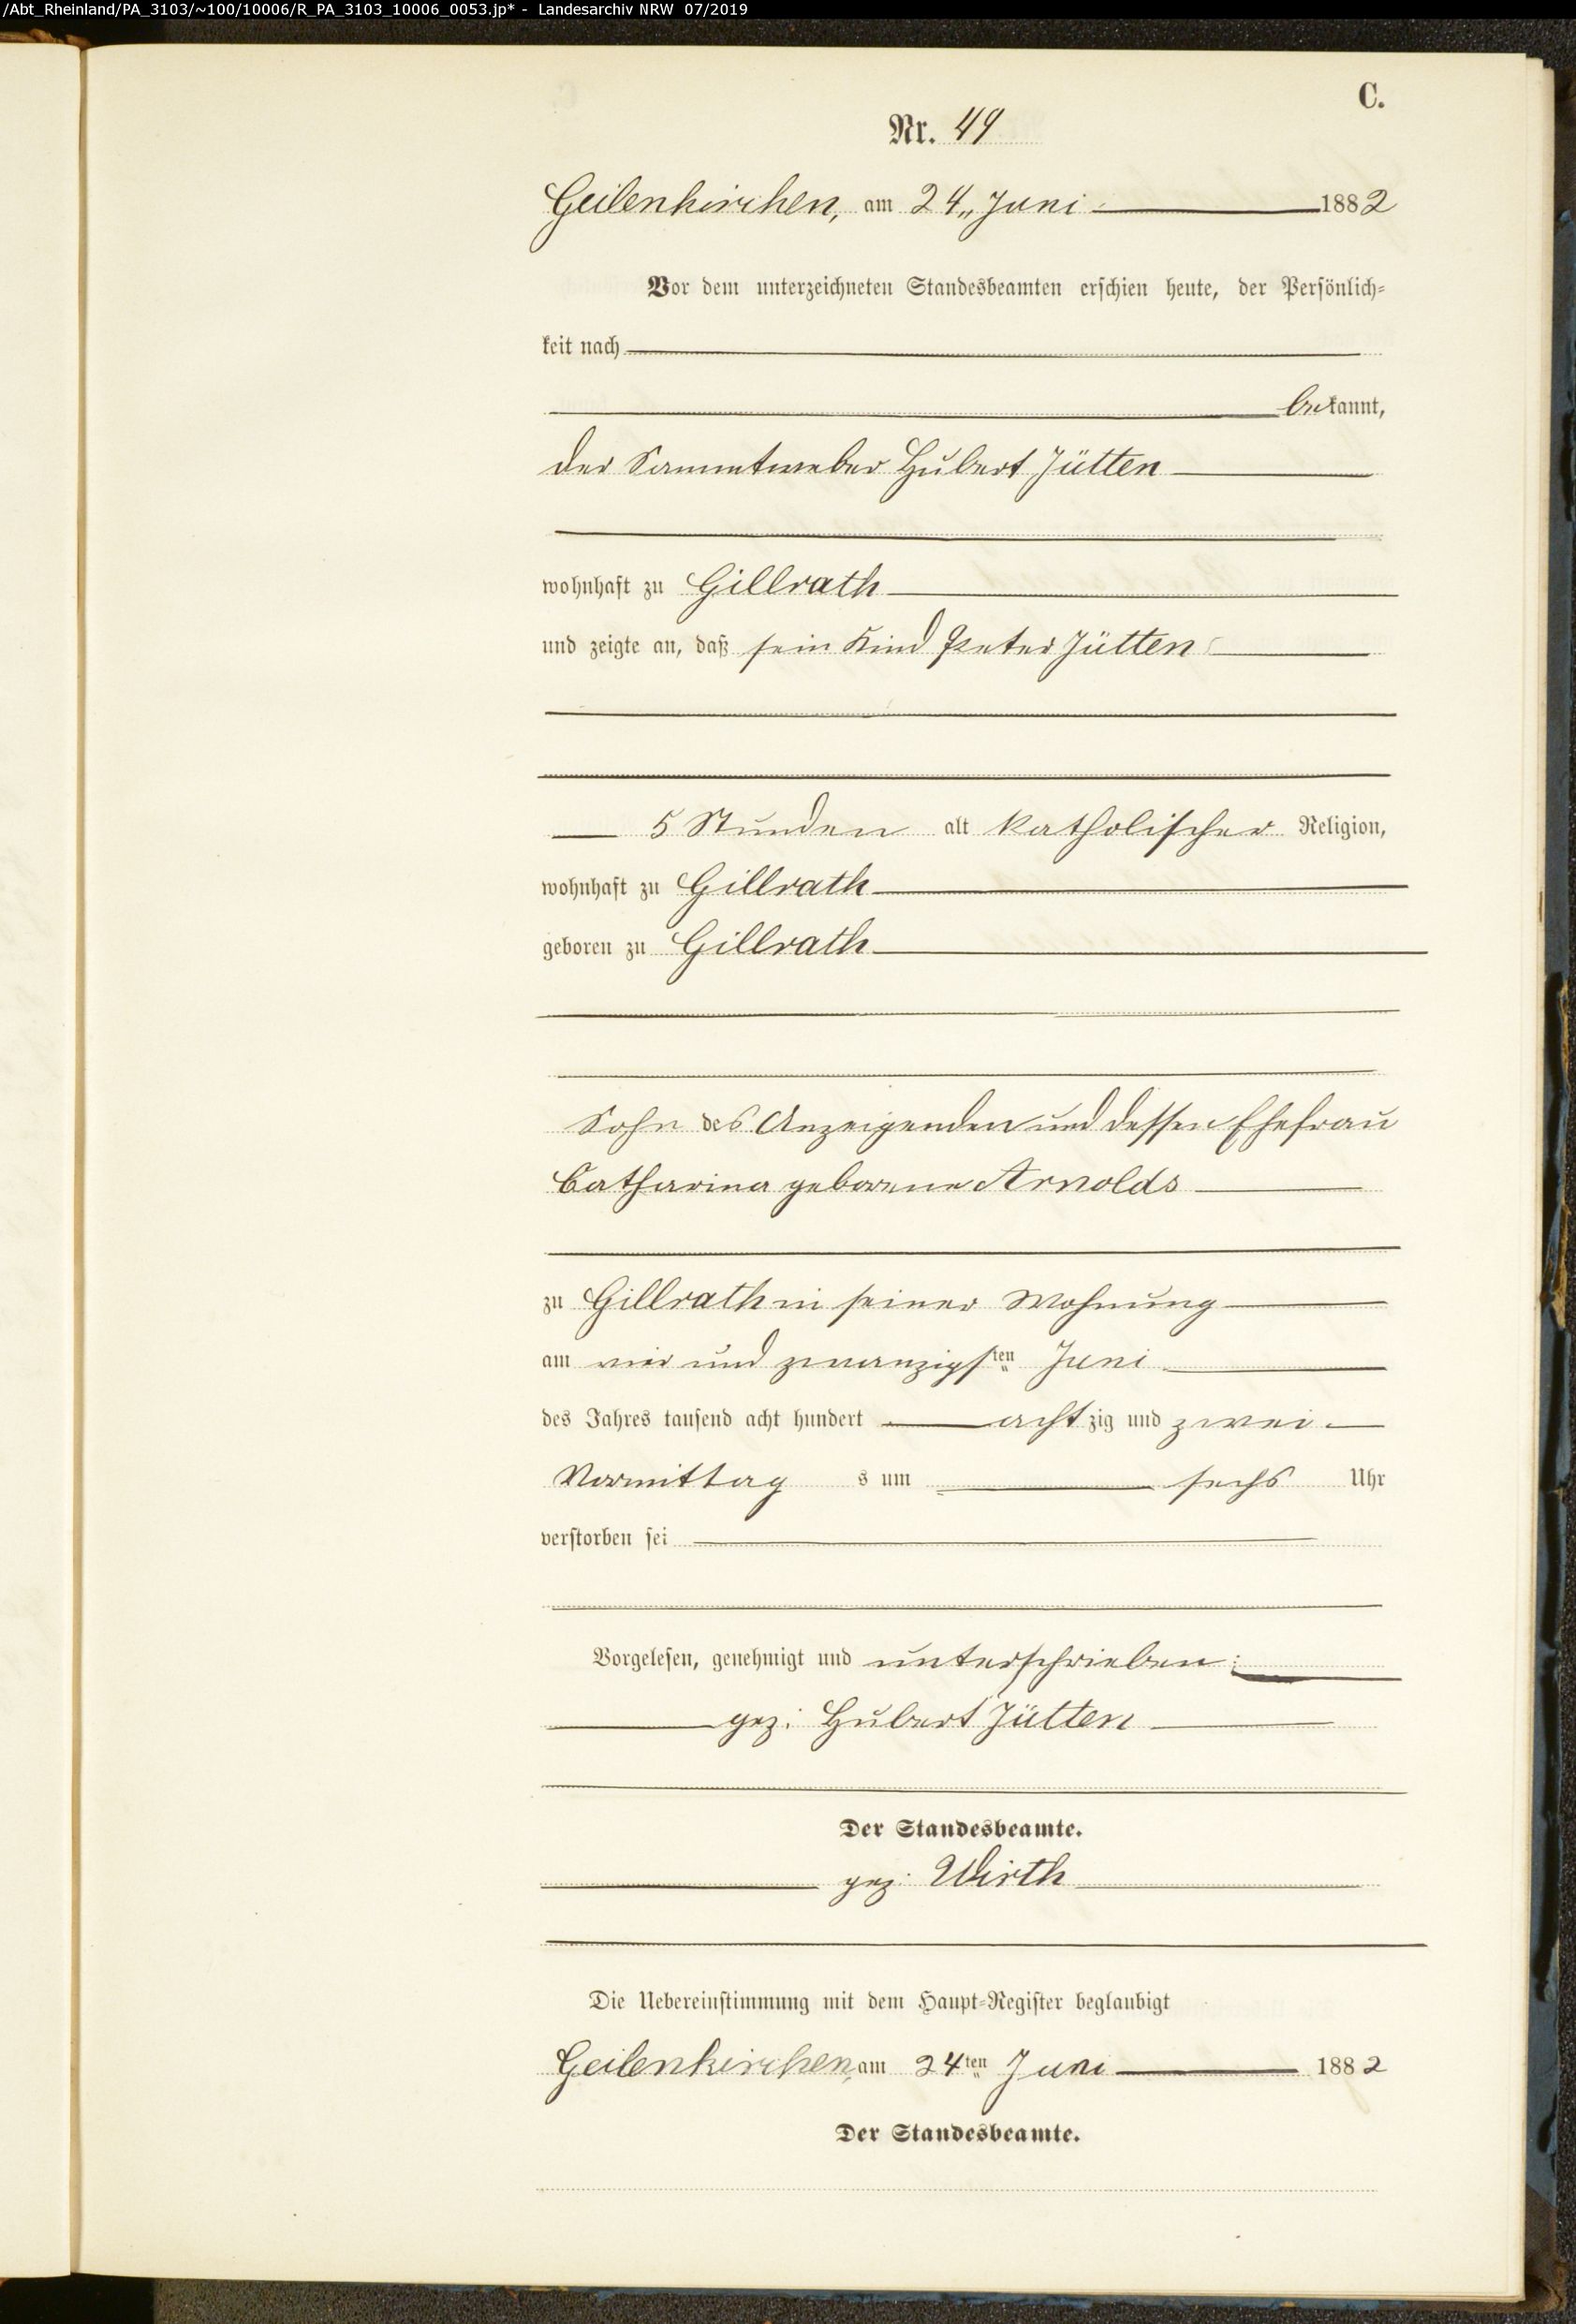 /Abt_Rheinland/PA_3103/~100/10006/R_PA_3103_10006_0053.jp* - Landesarchiv NRW 07/2019
C.
Nr. 49
Geilenkirchen, am 24„ Juni 1882
Vor dem unterzeichneten Standesbeamten erschien heute, der Persönlich-
keit nach
bekannt,
der Sammtweber Hubert Jütten
wohnhaft zu Gillrath
und zeigte an, daß sein Kind Peter Jütten
5 Stunden alt katholischer Religion,
wohnhaft zu Gillrath
geboren zu Gillrath
Sohn des Anzeigenden und dessen Ehefrau
Catharina geborene Arnolds
zu Gillrath in seiner Wohnung
am vier und zwanzigsten Juni
des Jahres tausend acht hundert achtzig und zwei
Vormittags um sechs Uhr
verstorben sei
Vorgelesen, genehmigt und unterschrieben:
gez: Hubert Jütten
Der Standesbeamte.
gez: Wirth
Die Uebereinstimmung mit dem Haupt-Register beglaubigt
Geilenkirchen, am 24ten Juni 1882
Der Standesbeamte.